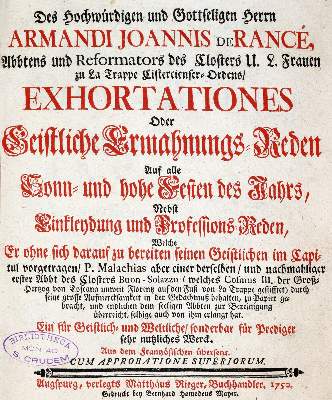 Des Hochwürdigen und Gottseligen Herrn
ARMANDI JOANNIS DE RANCÉ,
Abbtens und Reformators des Closters U. L. Frauen
zu La Trappe Cistercienser-Ordens/
EXHORTATIONES
Oder
Geistliche Ermahnungs-Reden
Auf alle
Sonn- und hohe Festen des Jahrs,
Nebst
Einkleydung und Professions-Reden,
Welche
Er ohne sich darauf zu bereiten seinen Geistlichen im Capi-
tul vorgetragen/ P. Malachias aber einer derselben/ und nachmahliger
erster Abbt des Closters Buon-Solazzo (welches Cosmus III. der Groß-
Hertzog von Toscana unweit Florenz auf den Fuß von La Trappe gestifftet) durch
seine grosse Aufmercksamkeit in der Gedächtnuß behalten, zu Papier ge-
bracht, und endlichen dem seeligen Abbten zur Bereinigung
überreicht, selbige auch von ihm erlangt hat.
Ein für Geistlich- und Weltliche/ sonderbar für Prediger
sehr nutzliches Werck.
Aus dem Französischen übersetzt.
CUM APPROBATIONE SUPERIORUM.
Augspurg, verlegts Matthäus Rieger, Buchhandler, 1750.
Gedruckt bey Bernhard Homodeus Mayer.
BIBLIOTHECA
MON. AD
S. CRUCEM